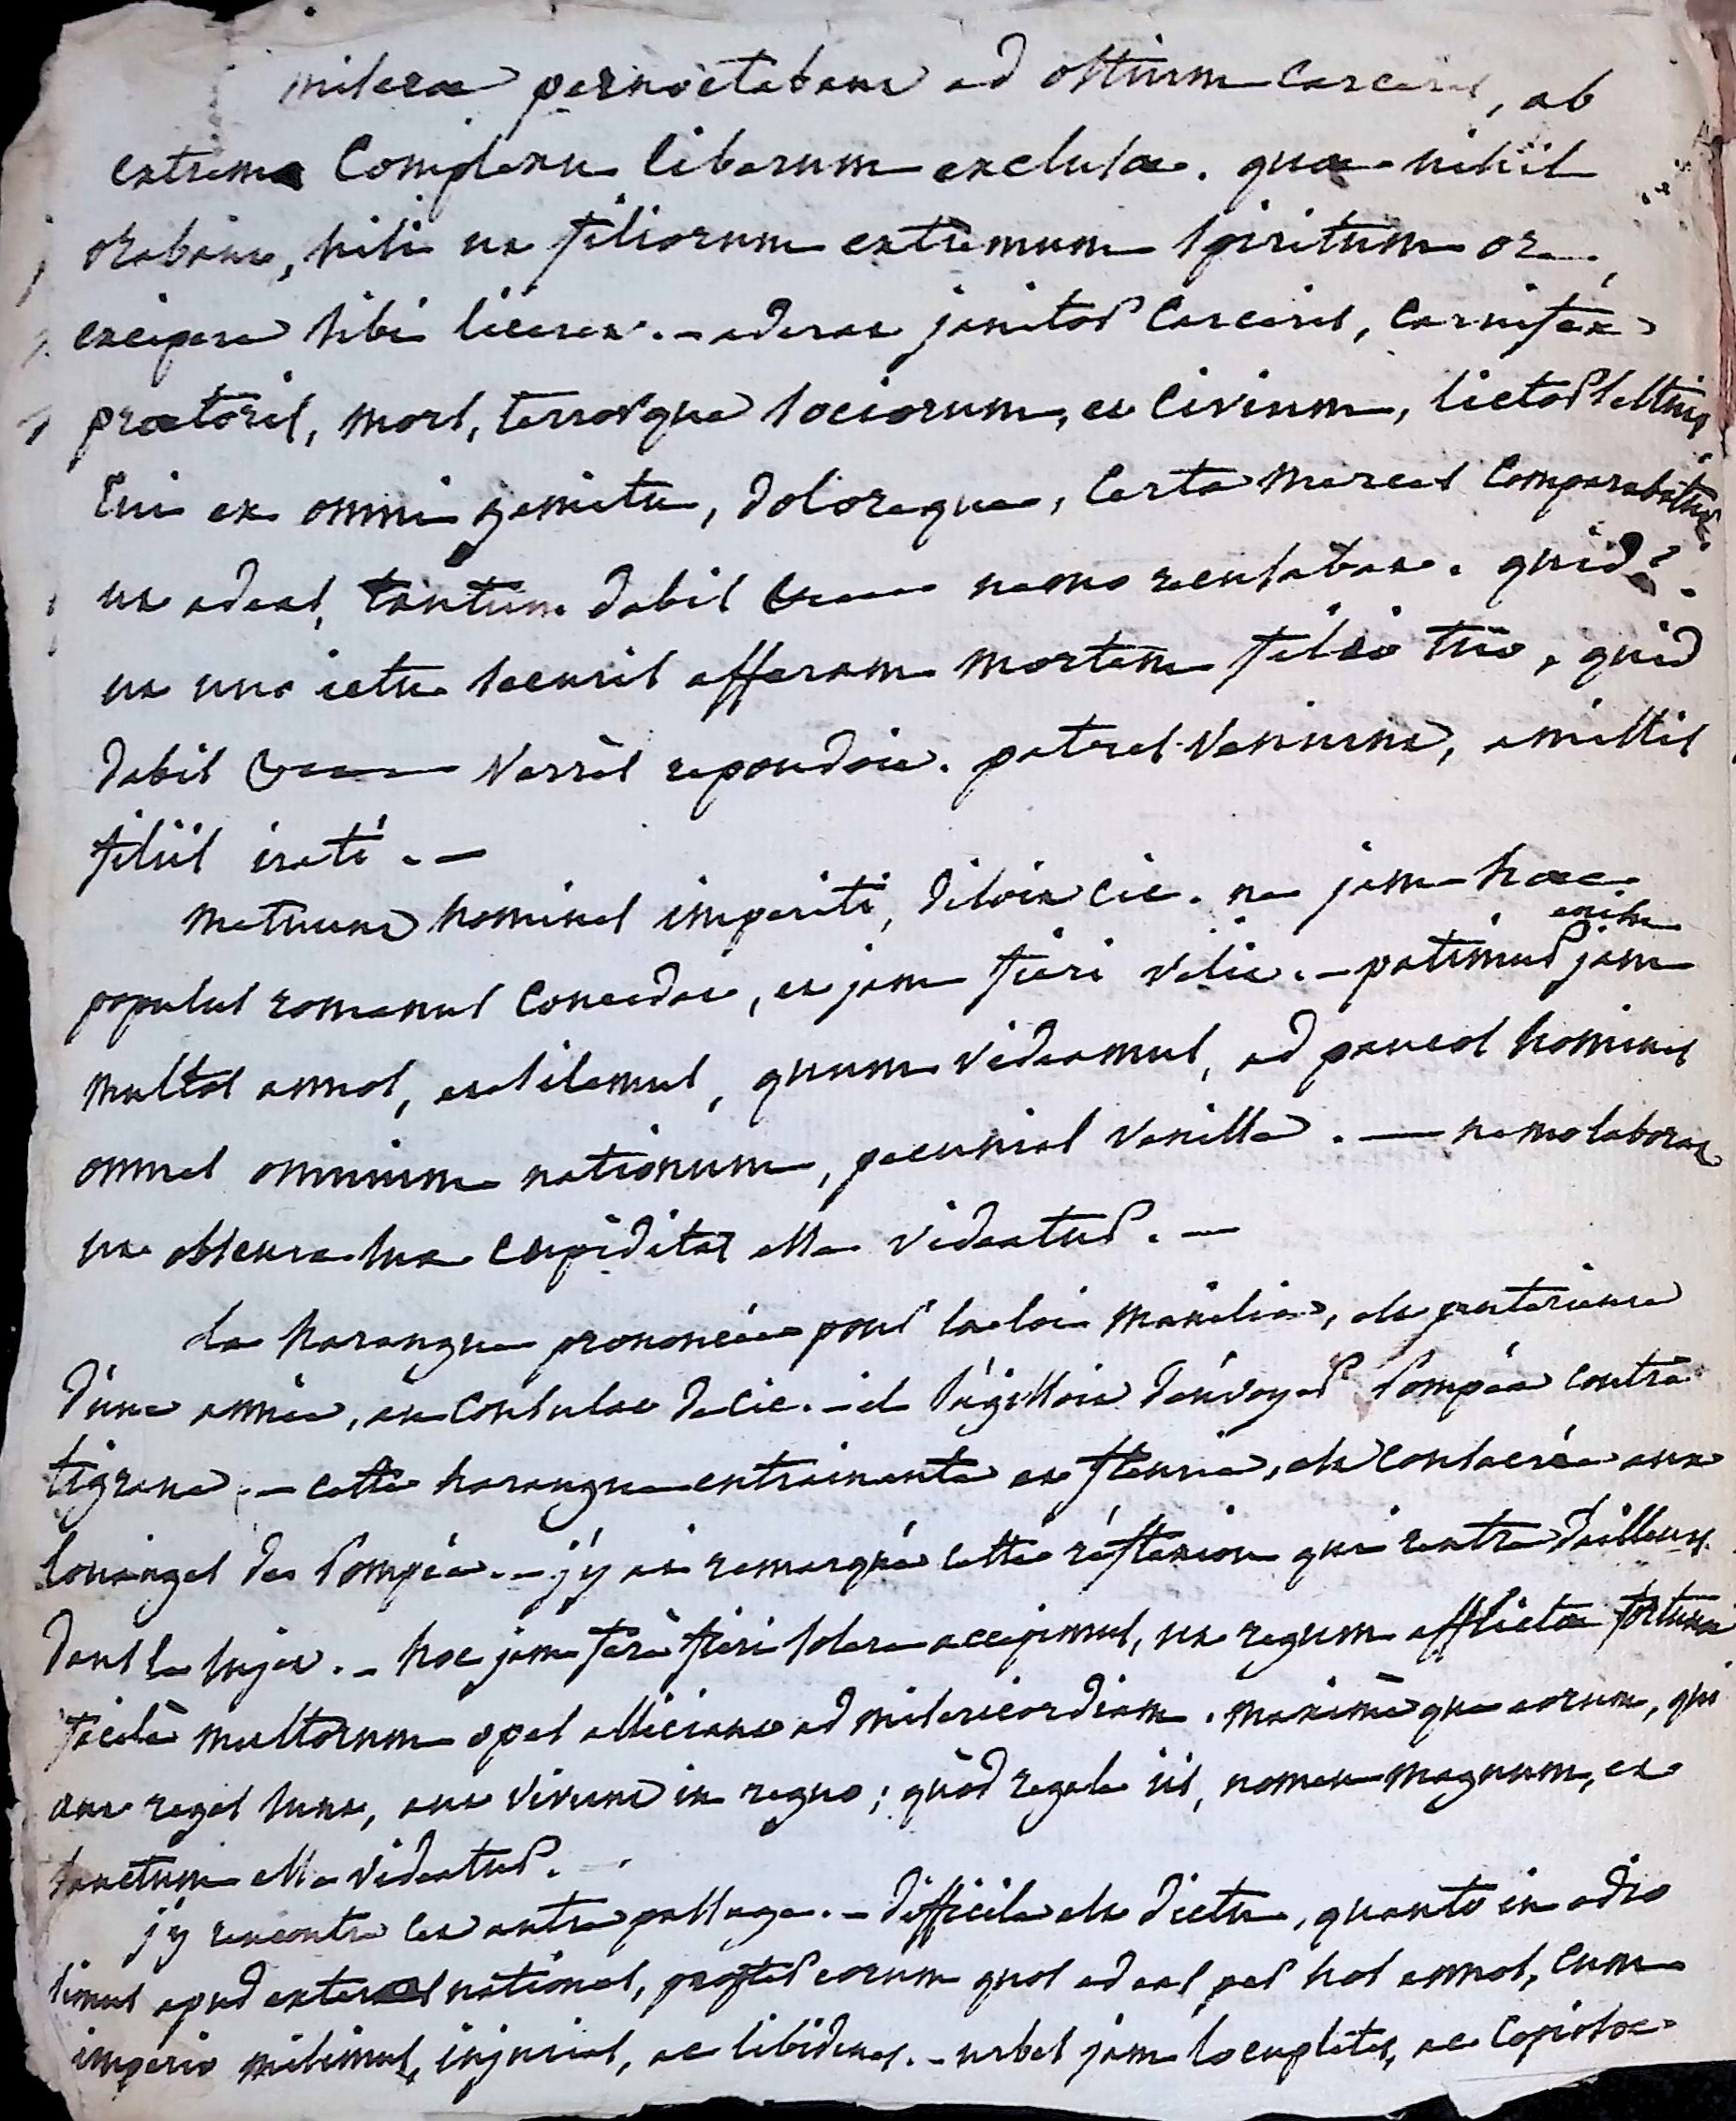 miserae pernoctabant ad ostium carceris, ab
extremo complexu liberum exclusae. quae nihil
orabant, nisi ut filiorum extremum spiritum ore
excipere sibi liceret. - aderat janitor carceris, carnifex
praetoris, mors, terrorque sociorum, et civium, lictor sestius
cui ex omni gemitu, doloreque, certa merces comparabatur.
ut adeas, tantum dabis nemo recusabat. quid?
ut uno ictu securis afferam mortem filio tuo, quid
dabis Verrès repondoit. patres veniunt, amissis
filiis irati. -
metuunt homines imperiti, disoit cic. ne jam haec
populus romanus concedat, et jam fieri velit. - patimur enim jam
multos annos, et silemus, quum videamus, ad paucos homines
omnes omnium nationum, pecunias venisse. - nemo laborat
ut obscura sua cupiditas esse videatur. -
La harangue prononcée pour la loi manilia, est postérieure
d'une année, au consulat de cic. - il s'agissoit d'envoyer Pompée contre
tigrane. - cette harangue entrainante et fleurie, est consacrée aux
louanges de Pompée. - j'y ai remarqué cette réflexion qui rentre d'ailleurs
dans le sujet. - hoc jam ferè fieri solere accepimus, ut regum afflictae fortunae
facilè multorum opes alliciant ad misericordiam. maximèque eorum, qui
aut reges sunt, aut vivunt in regno; quòd regale iis, nomen magnum, et
sanctum esse videatur.
j'y rencontre cet autre passage. - difficile est dictu, quanto in odio
simus apud exteras nationes, propter eorum quos ad eas per hos annos, cum
imperio misimus, injurias, ac libidines. - urbes jam locupletes, ac copiosae